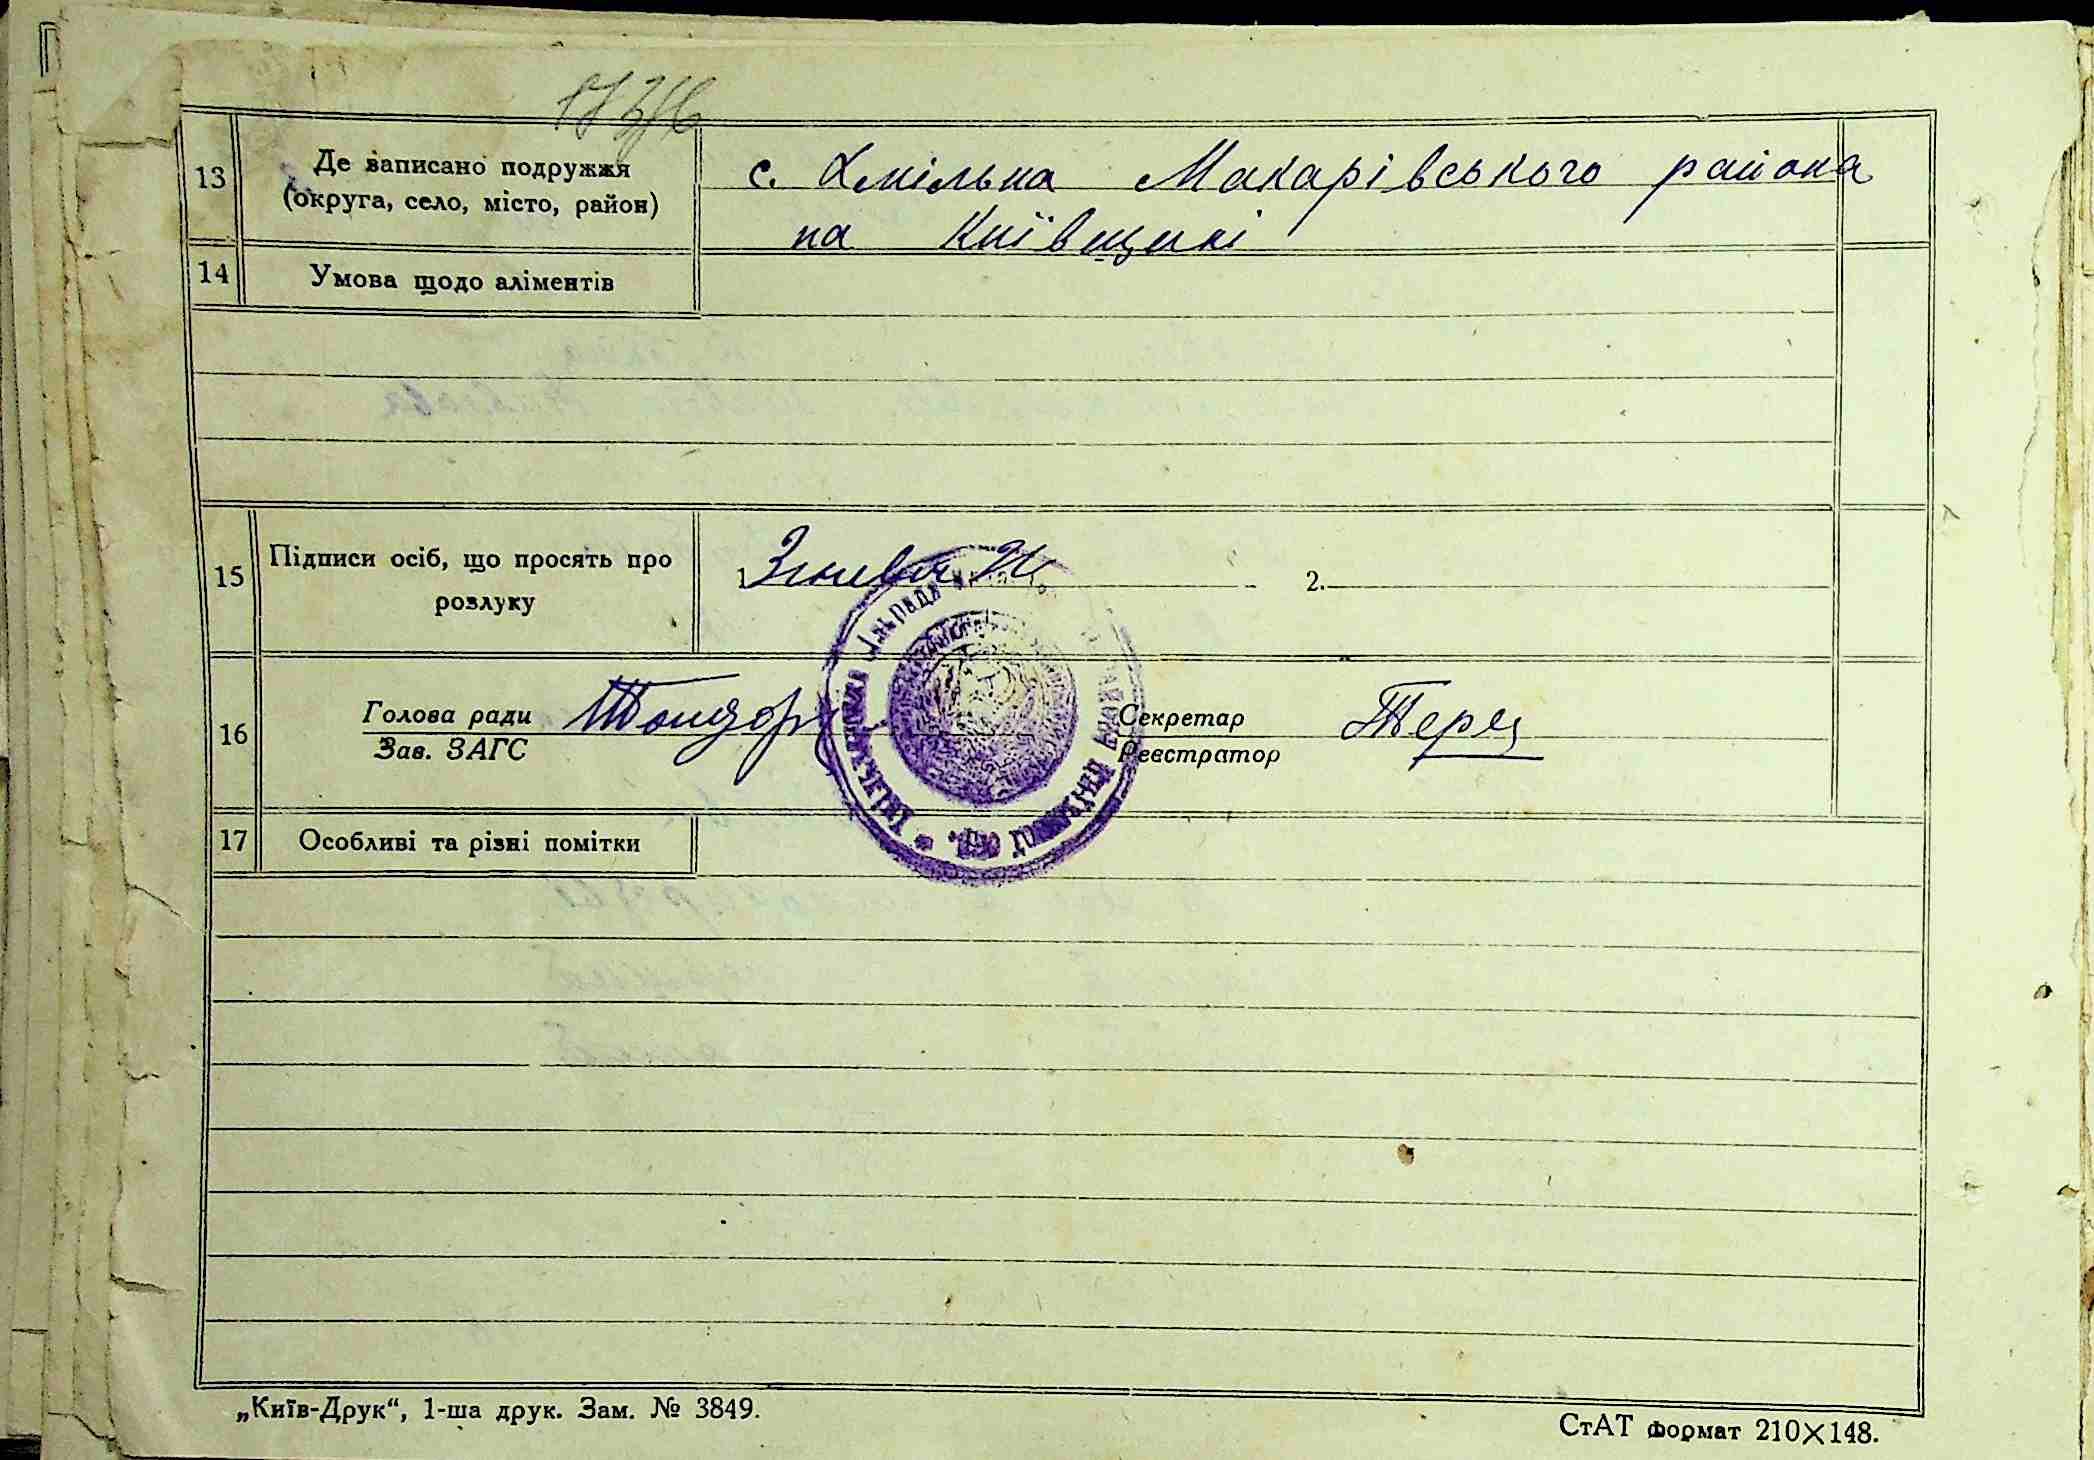 13
Де записано подружжя
(округа, село, місто, район)
с. Хмільна Макарівського района
на Київщині
14
Умова щодо аліментів
15
Підписи осіб, що просять про
розлуку
1.
2.
16
Голова ради
Зав. ЗАГС
Секретар
Реєстратор
17
Особливі та різні помітки
„Київ-Друк“, 1-ша друк. Зам. № 3849.
СтАТ формат 210×148.